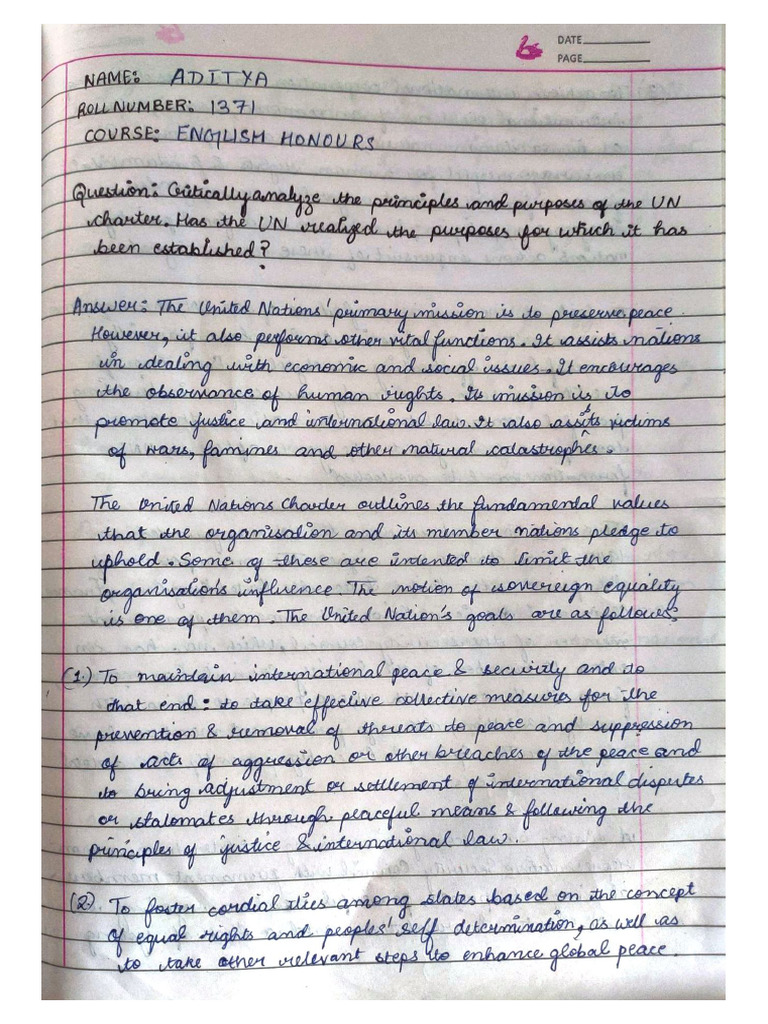 DATE
PAGE
NAME: ADITYA
ROLL NUMBER: 1371
COURSE: ENGLISH HONOURS
Question: Critically analyze the principles and purposes of the UN
charter. Has the UN realized the purposes for which it has
been established?
Answer: The United Nations' primary mission is to preserve peace.
However, it also performs other vital functions. It assists nations
in dealing with economic and social issues. It encourages
the observance of human rights. Its mission is to
promote justice and international law. It also assists victims
of wars, famines and other natural catastrophes.
The United Nations Charter outlines the fundamental values
that the organisation and its member nations pledge to
uphold. Some of these are intented to limit the
organisation's influence. The notion of sovereign equality
is one of them. The United Nation's goals are as follows:
(1.) To maintain international peace & security and to
that end: to take effective collective measures for the
prevention & removal of threats to peace and suppression
of acts of aggression or other breaches of the peace and
to bring adjustment or settlement of international disputes
or stalomates through peaceful means & following the
principles of justice & international law.
(2.) To foster cordial ties among states based on the concept
of equal rights and peoples' self determination, as well as
to take other relevant steps to enhance global peace.